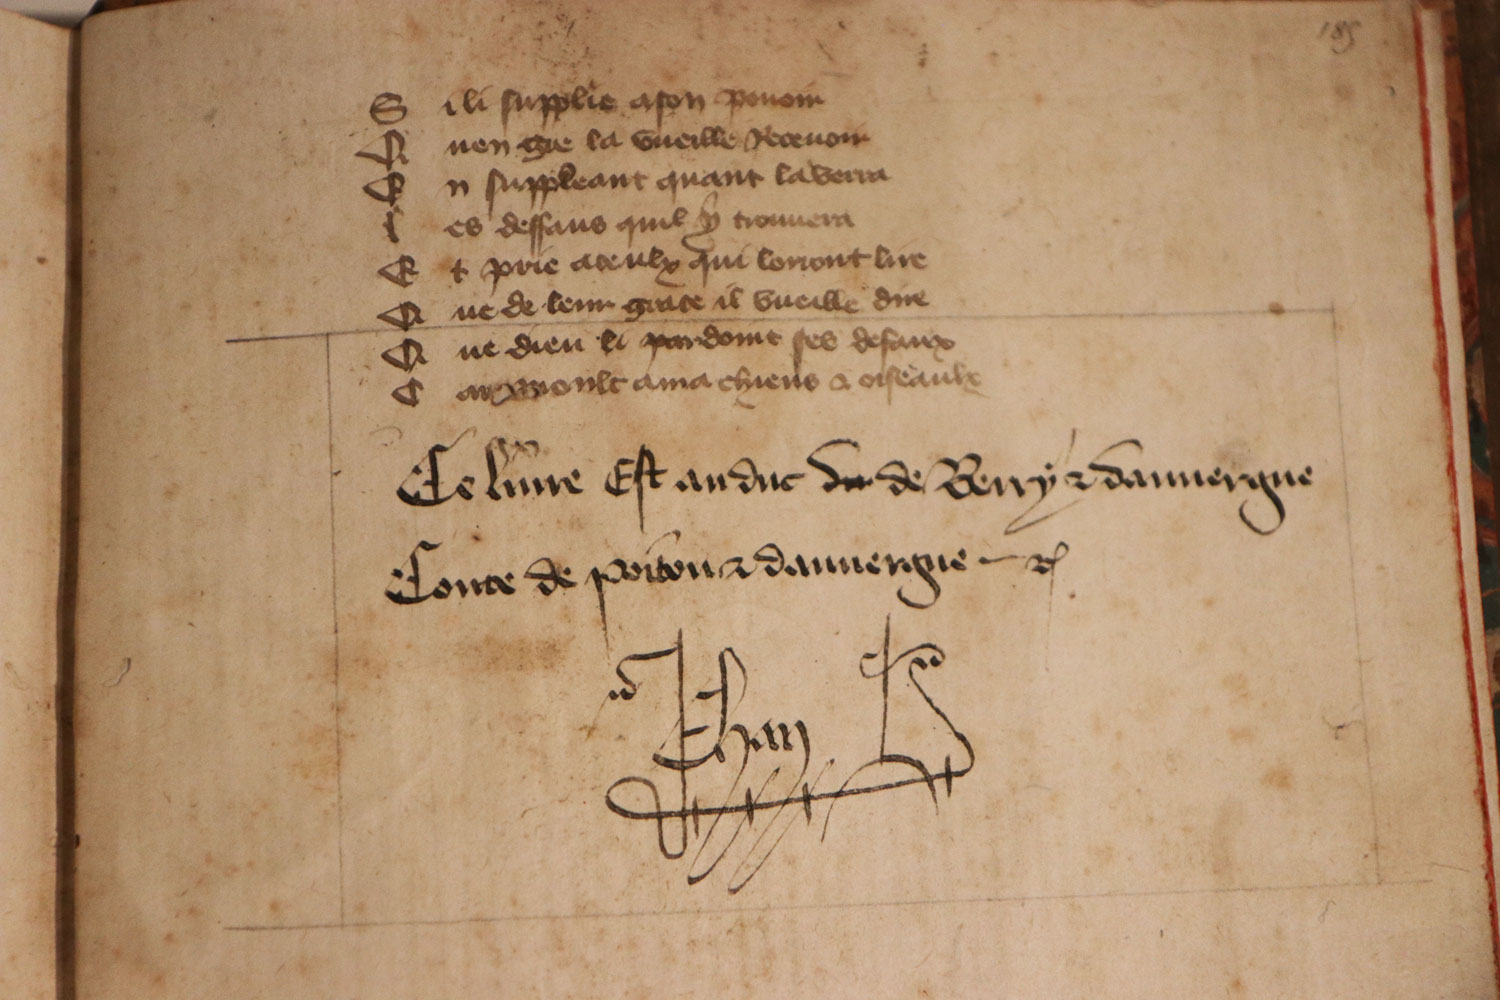 185
S i li supplie a son pouoir
Q uen gre la vueille Receuoir
E n suppleant quant la verra
L es deffaus quil y trouuera
E t prie a ceulx qui lorront lire
Q ue de leur grace il vueille dire
Q ue dieu li pardoint ses defaux
C ar moult ama chiens & oiseaulx
Ce liure Est au duc de Berry & dauuergne
Conte de poitou & dauuergne
Jehan B